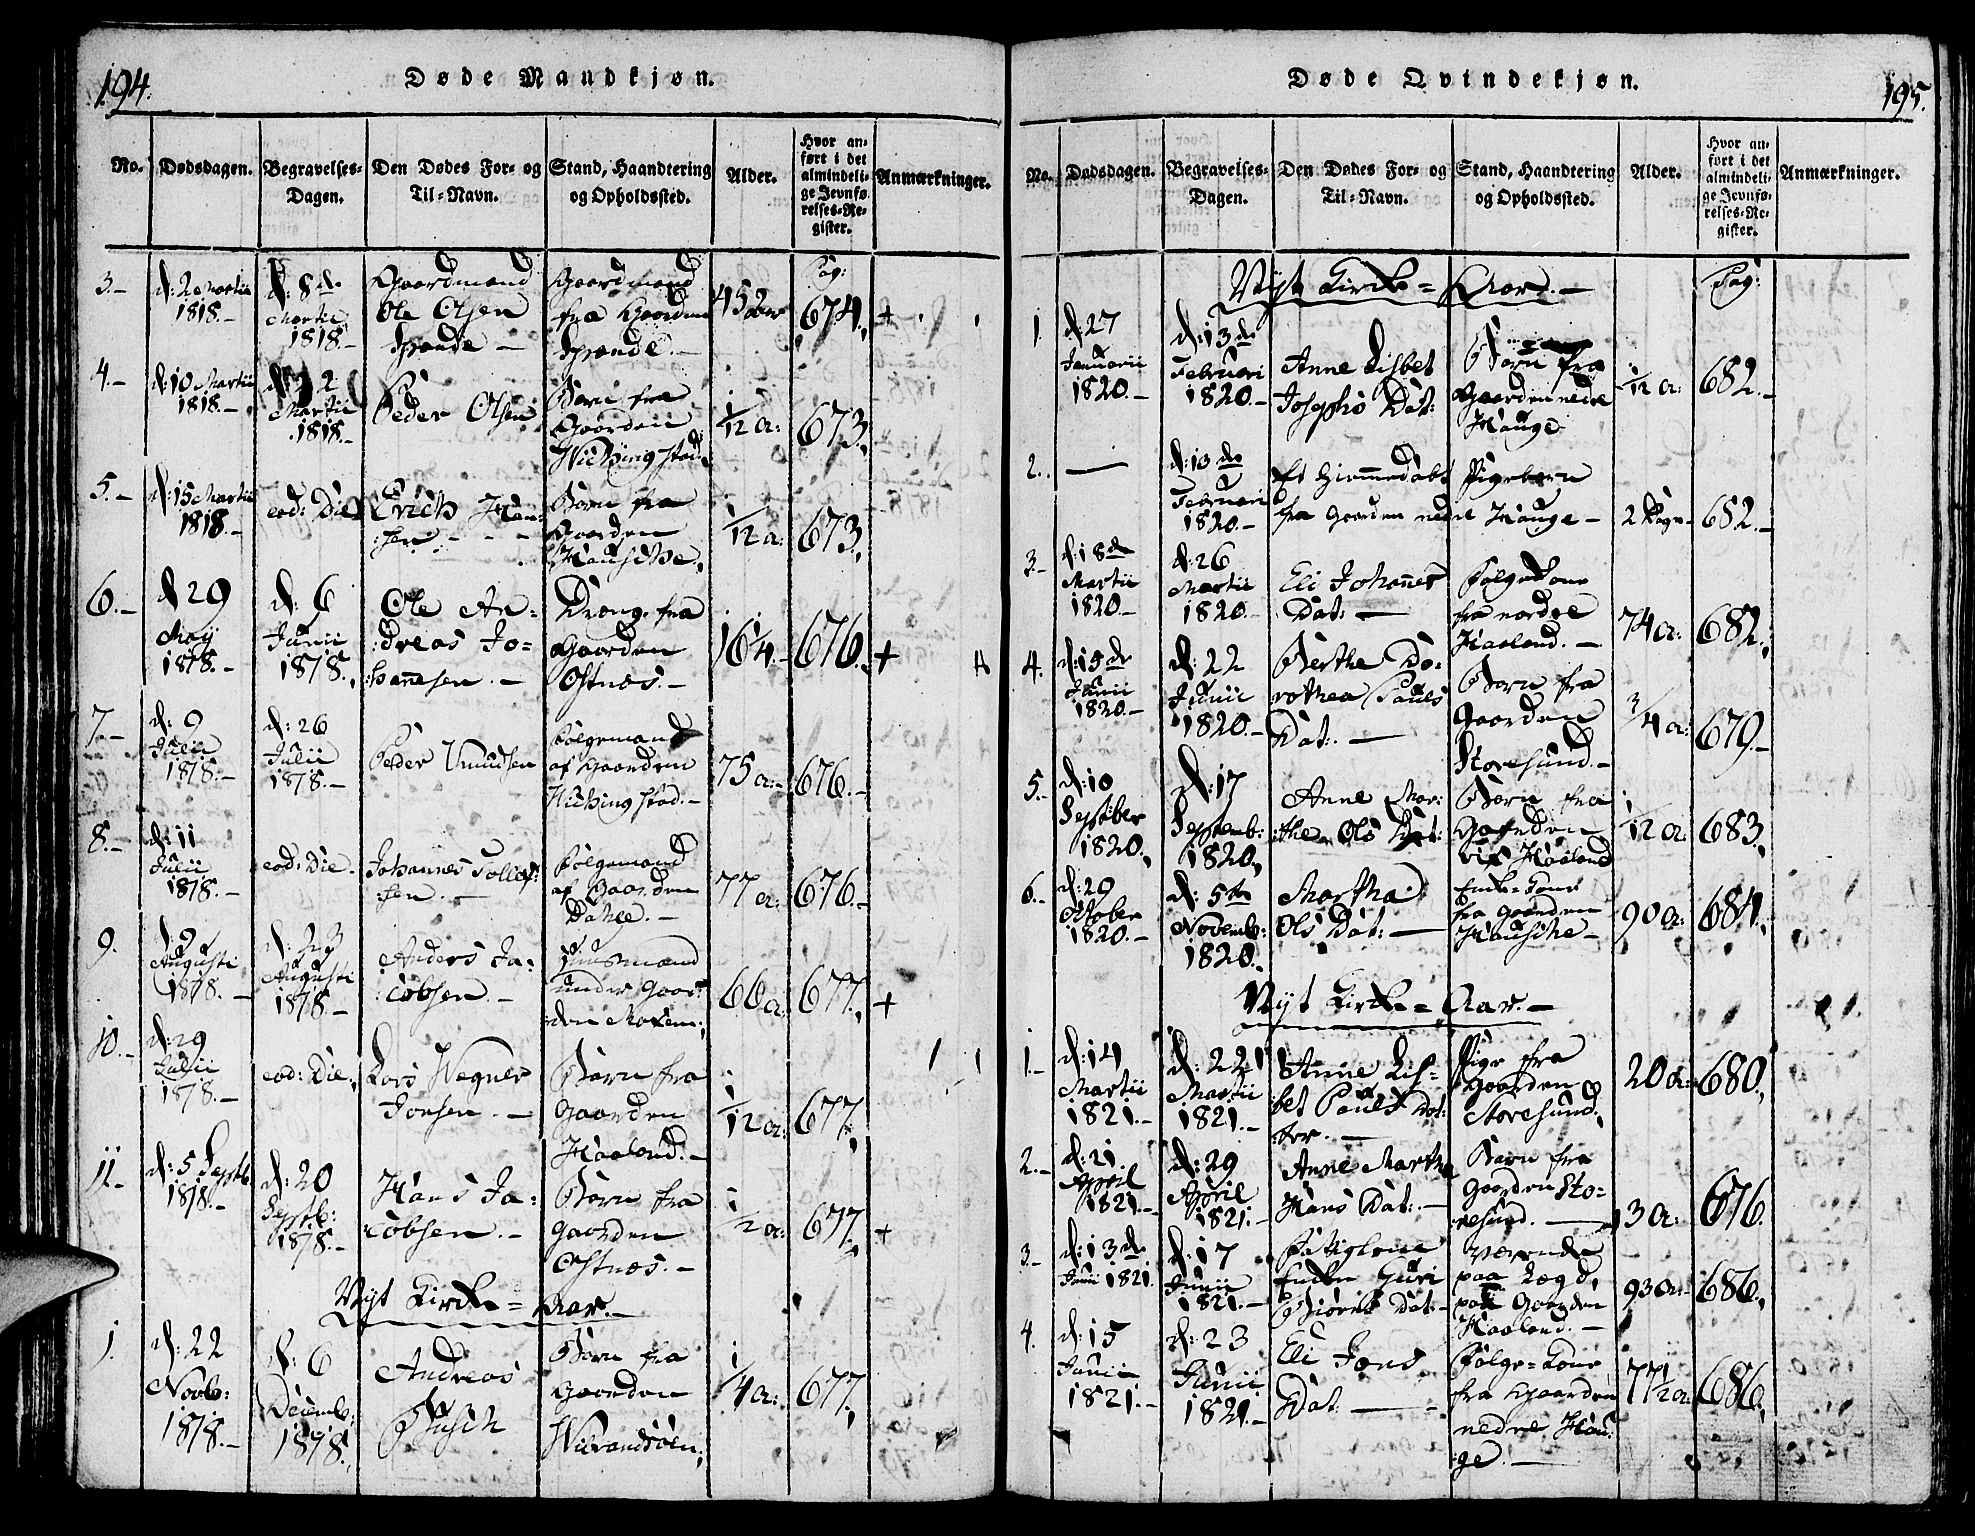 194.
Døde Mandkjøn.
No.
Dødsdagen.
Begravelses-
Dagen.
Den Dødes For- og
Til-Navn.
Stand, Haandtering
og Opholdssted.
Alder.
Hvor an-
ført i det
almindeli-
ge Jevnfø-
relses-Re-
gister.
Anmærkninger.
3.-
d: 2 Martii
1818.-
d: 8de
Martii
1818.-
Gaardmand
Ole Olsen
Spande -
Gaardmand
fra Gaarden
Spande.-
45
Pag:
674.,
+
4.-
d: 10 Martii
1818.-
d: 22
Martii
1818.-
Peder Olsen
Barn fra
Gaarden
1/12 a:
673.,
5.-
d: 15 Martii
1818.-
eod: Die
Erich Han-
:sen. - - -
Barn fra
Gaarden
Hausche,
1/12 a:
673.,
6.-
d 29
Maij
1818.-
d: 6
Junii
1818.,
Ole An-
:dreas Jo-
:hannesen.-
Dreng fra
Gaarden
Ostnæs.-
16 1/4.-
676.,
+
7.-
d: 9
Julii
1818.-
d: 26
Julii
1818.-
Peder Knudsen
Følgemand
af Gaarden
75 a:-
676.-
8.-
d: 11
Julii
1818.-
eod: Die.
Johannes Tollef-
sen.-
Følgemand
af Gaarden
77 a:
676.-
9.
d: 9
Augusti
1818.-
d: 23
Augusti
1818.-
Anders Ja-
:cobsen.-
Huusmand
under Gaar-
:den
66 a:
677.,
+
10.-
d: 29
Julii
1818.-
eod: Die,
Lars Wegner
Jonsen.-
Barn fra
Gaarden
Haaland.-
1/12 a:
677.,
11.-
d: 5 Septb.
1818.-
d: 20
Septb:
1818.-
Hans Ja-
:cobsen.-
Barn fra
Gaarden
Ostnæs.-
1/2 a:
677.,
+
Nyt Kirke=Aar.-
1.
d: 22
Novb:
1818.-
d: 6
Decemb:
1818.,
Andreas
Busch
Barn fra
Gaarden
Wibrandsøen,
1/4 a:
677.,
195.
Døde Qvindekjøn.
No.
Dødsdagen.
Begravelses-
Dagen.
Den Dødes For- og
Til-Navn.
Stand, Haandtering
og Opholdssted.
Alder.
Hvor an-
ført i det
almindeli-
ge Jevnfø-
relses-Re-
gister.
Anmærkninger.
Nyt Kirke=Aar.-
Pag:
1.
d: 27
Januarii
1820.-
d: 13de
Februari
1820.-
Anne Lisbet
Josephs Dat:
Barn fra
Gaarden nedre
Hauge
1/12 a:
682.-
2.
d: 13de
Februari
1820.-
Et hiemmedøbt Pigebarn
fra Gaarden nedre Hauge -
2 Dage-
682.-
3.-
d: 18de
Martii
1820.-
d: 26
Martii
1820.-
Eli Johannes
Dat: -
Følgekone
fra nordre
Haaland.-
74 a:
682.,
4.
d: 15de
Junii
1820.-
d: 22
Junii
1820.-
Berthe Do-
rothea Pauls
Dat: -
Barn fra
Gaarden
Storesund.-
3/4 a:
679.-
5.
d: 10
Septber
1820.,
d: 17
Septemb:
1820.,
Anne Mar-
:the Ols Dat:
Barn fra
Gaarden
Haaland
1/12 a:
683.,
6.-
d: 29
October
1820.-
d: 5te
Novemb:
1820.,
Martha
Ols Dat: -
Enke=Kone
fra Gaarden
Hausche-
90 a:
684.,
Nyt Kirke=Aar.-
1.-
d: 14
Martii
1821.-
d: 22
Martii
1821.-
Anne Lis-
bet Pauls Dat-
ter.-
Pige fra
Gaarden
Storesund,
20 a:
680.,
2.-
d: 21
April
1821.-
d: 29
April
1821.-
Anne Marthe
Hans Dat: -
Barn fra
Gaarden Sto-
resund.-
3 a:
676.
3.-
d: 13de
Juni 1821.
d: 17
Junii
1821.-
Fattiglem
Enken Guri
Dat:-
værende
paa Lægd,
paa Gaarden
Haaland.-
93 a:
686.,
4.
d: 15
Junii
1821.-
d: 23
Junii
1821.-
Eli Jens
Dat: -
Følge=Kone
fra Gaarden
nedre Hau-
:ge.-
77 1/2 a
686.,